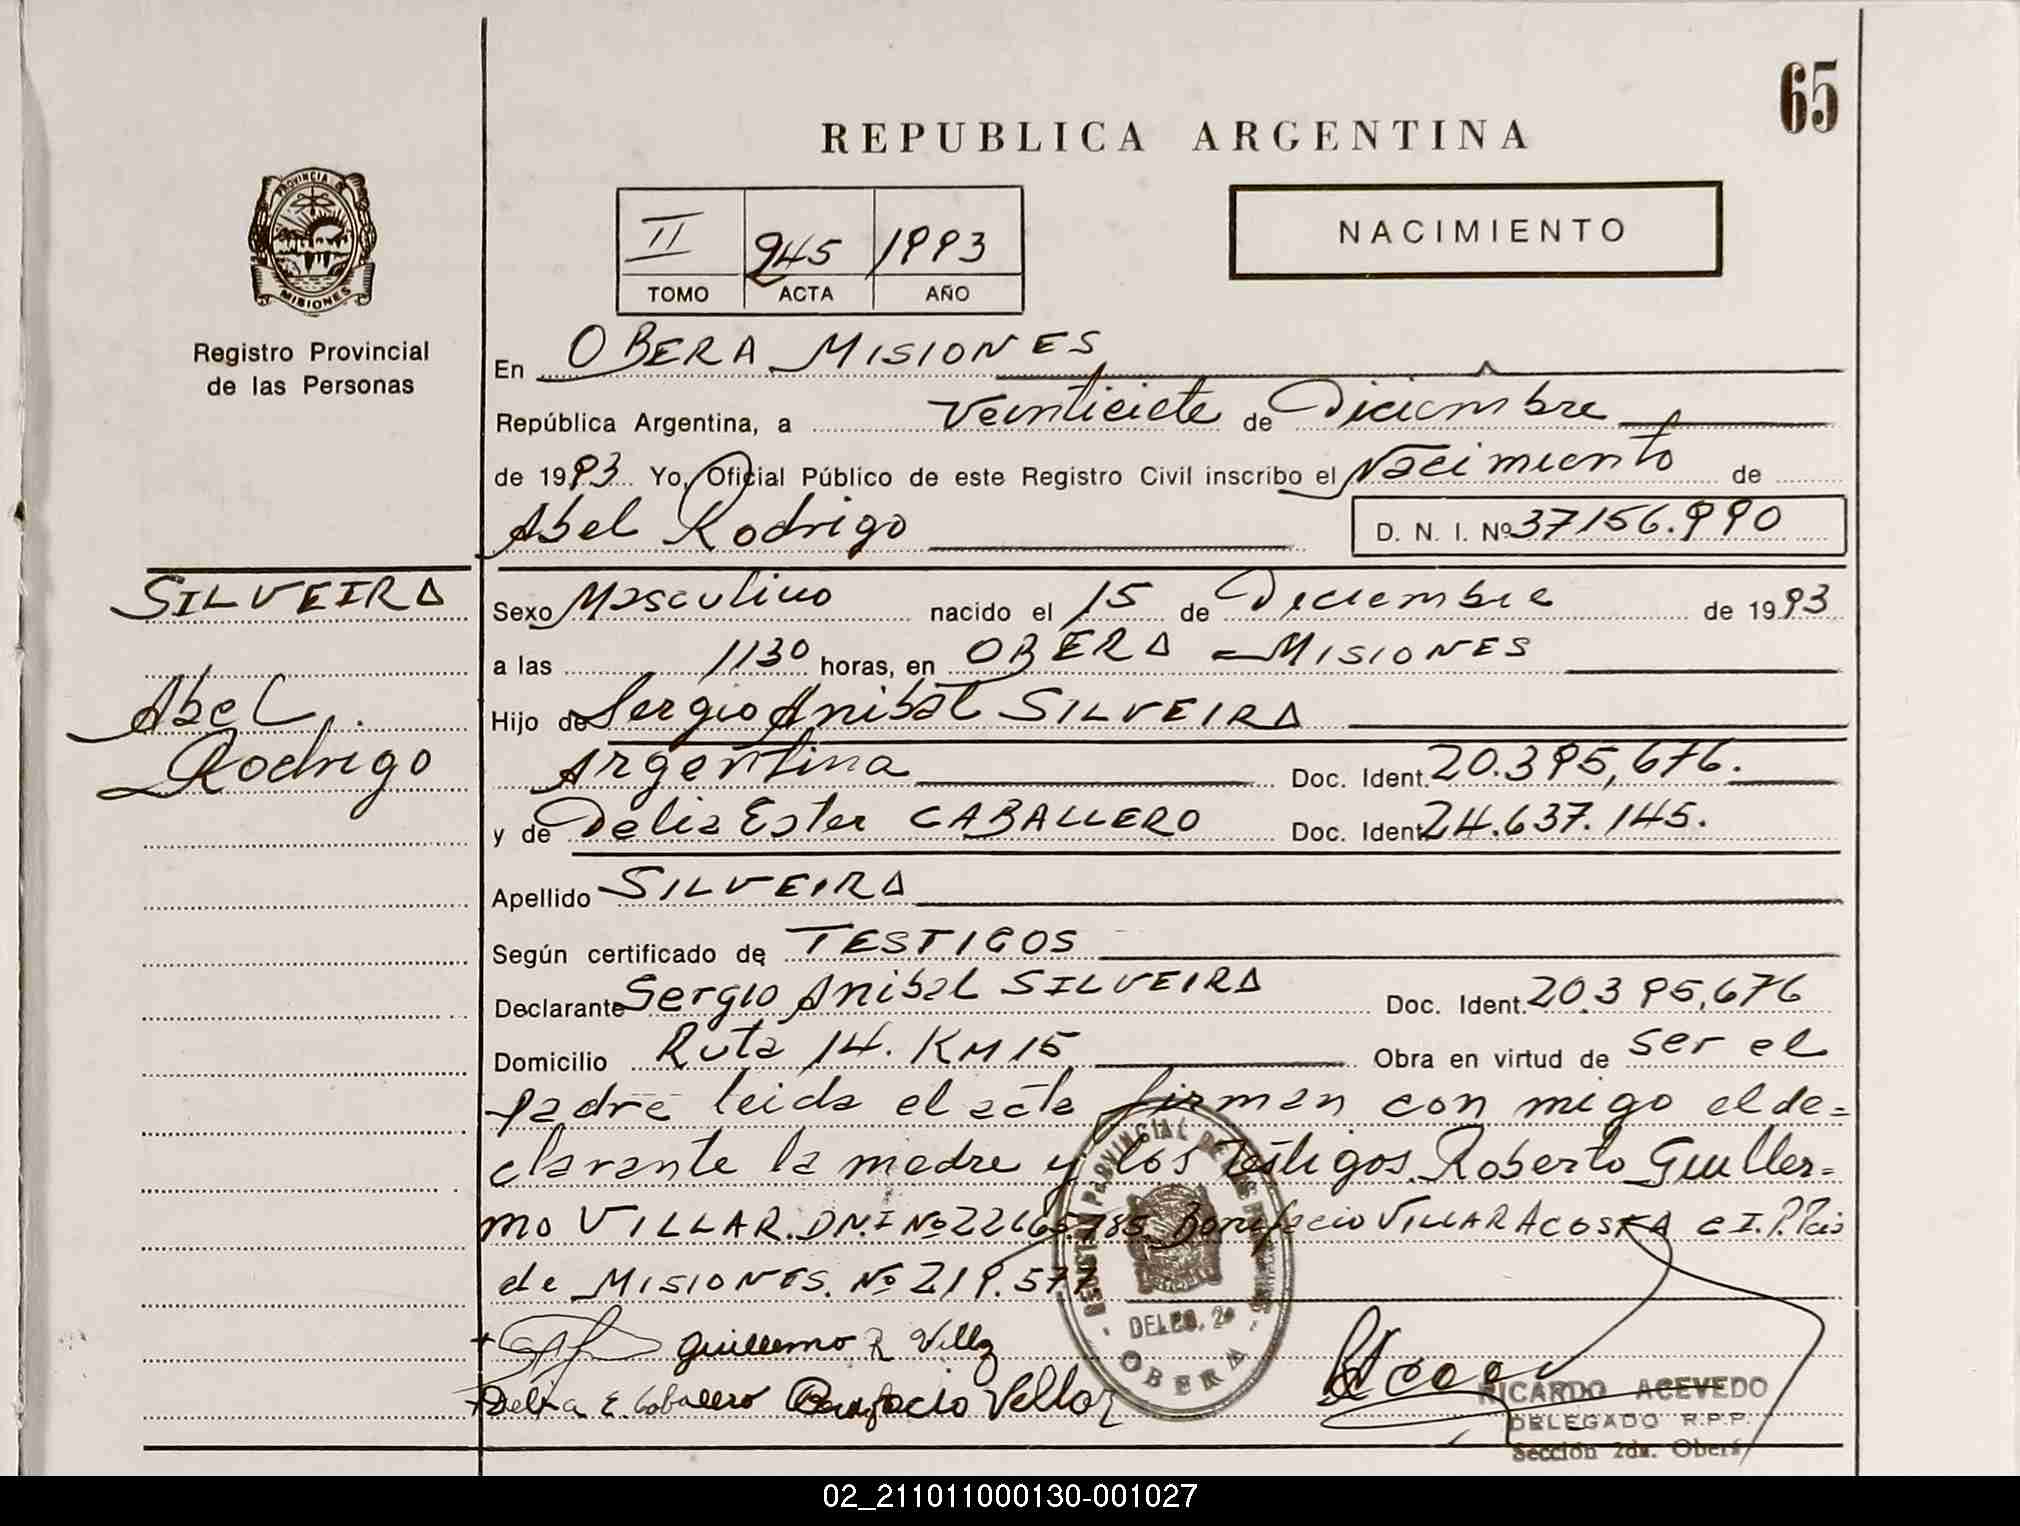 65
REPUBLICA ARGENTINA
PROVINCIA DE
MISIONES
Registro Provincial
de las Personas
II 945 1993
TOMO ACTA AÑO
NACIMIENTO
En OBERA MISIONES
República Argentina, a Veinticiete de Diciembre
de 1993 Yo, Oficial Público de este Registro Civil inscribo el Nacimiento de
Abel Rodrigo D. N. I. Nº 37156.990
SILVEIRA
Abel
Rodrigo
Sexo Masculino nacido el 15 de Diciembre de 1993
a las 1130 horas, en OBERA - MISIONES
Hijo de Sergio Anibal SILVEIRA
Argentina Doc. Ident. 20.395,676.
y de Delia Ester CABALLERO Doc. Ident. 24.637.145.
Apellido SILVEIRA
Según certificado de TESTIGOS
Declarante Sergio Anibal SILVEIRA Doc. Ident. 20.395,676
Domicilio Ruta 14. KM 15 Obra en virtud de ser el
padre leida el acta firman con migo el de=
clarante la madre y los Testigos Roberto Guiller=
mo VILLAR. DN.I Nº 22665.785. Bonifacio VILLAR ACOSTA C I. P.
de MISIONES. Nº 219.577
Guillermo R Villa
Delia E. Caballero Bonifacio Vellar
REGISTRO PROVINCIAL DE LAS PERSONAS
DELEG. 2ª
OBERA
RICARDO ACEVEDO
DELEGADO R.P.P.
Sección 2da. Oberá
02_211011000130-001027